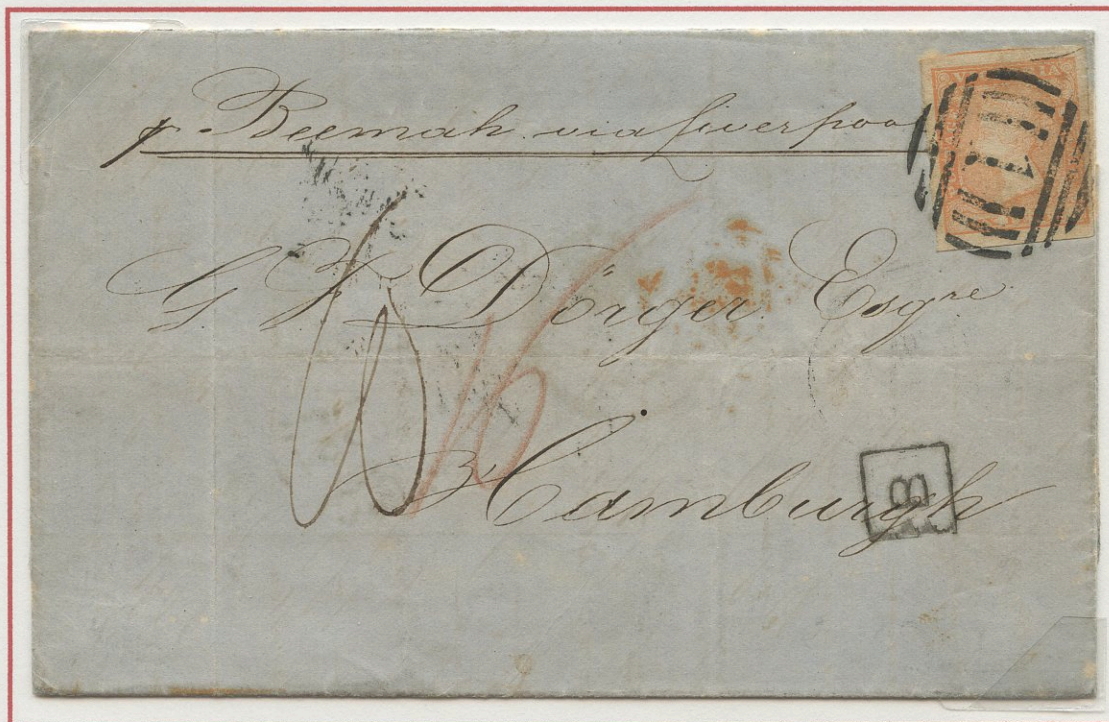 pr Beemah via Liverpool
G. F. Dörger Esqre
Hamburgh
16
B